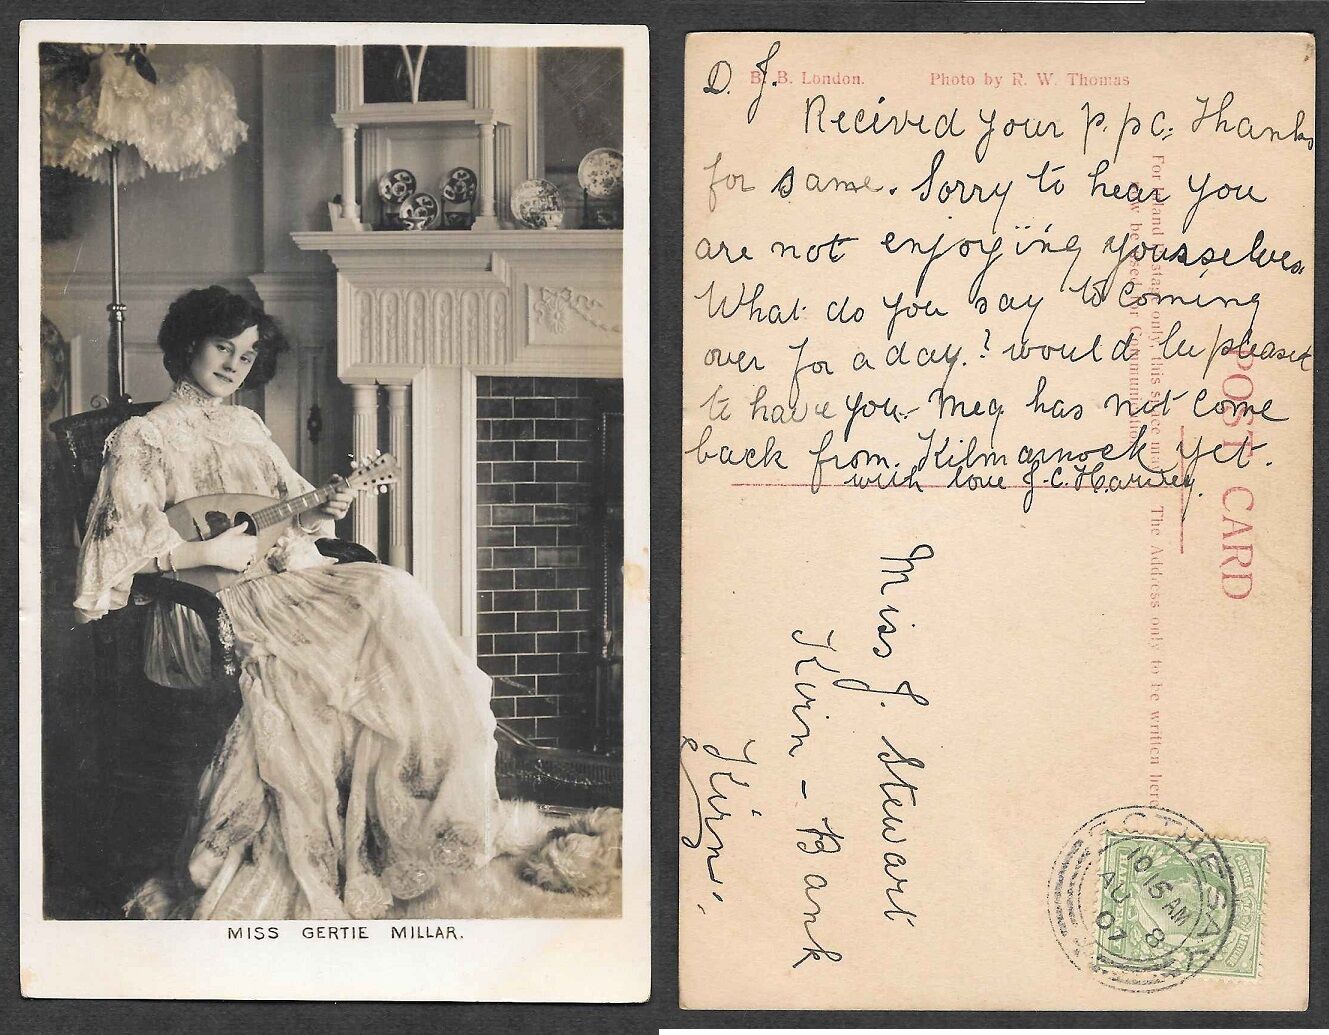 MISS GERTIE MILLAR.
B. B. London. Photo by R. W. Thomas
D. J.
Recived your p.p.c. Thanks
for same. Sorry to hear you
are not enjoying yourselves
What do you say to coming
over for a day.? would be please
to have you. Meg has not come
back from. Kilmarnock yet.
with love J. C. Harvey.
POST CARD
For Inland Postage only, this space may
now be used for Communication
The Address only to be written here
Miss J. Stewart
Kirn - Bank
Kirn.
ROTHESAY
10 15 AM
AU 8
07